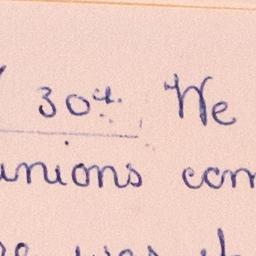 30th. We
unions com
was